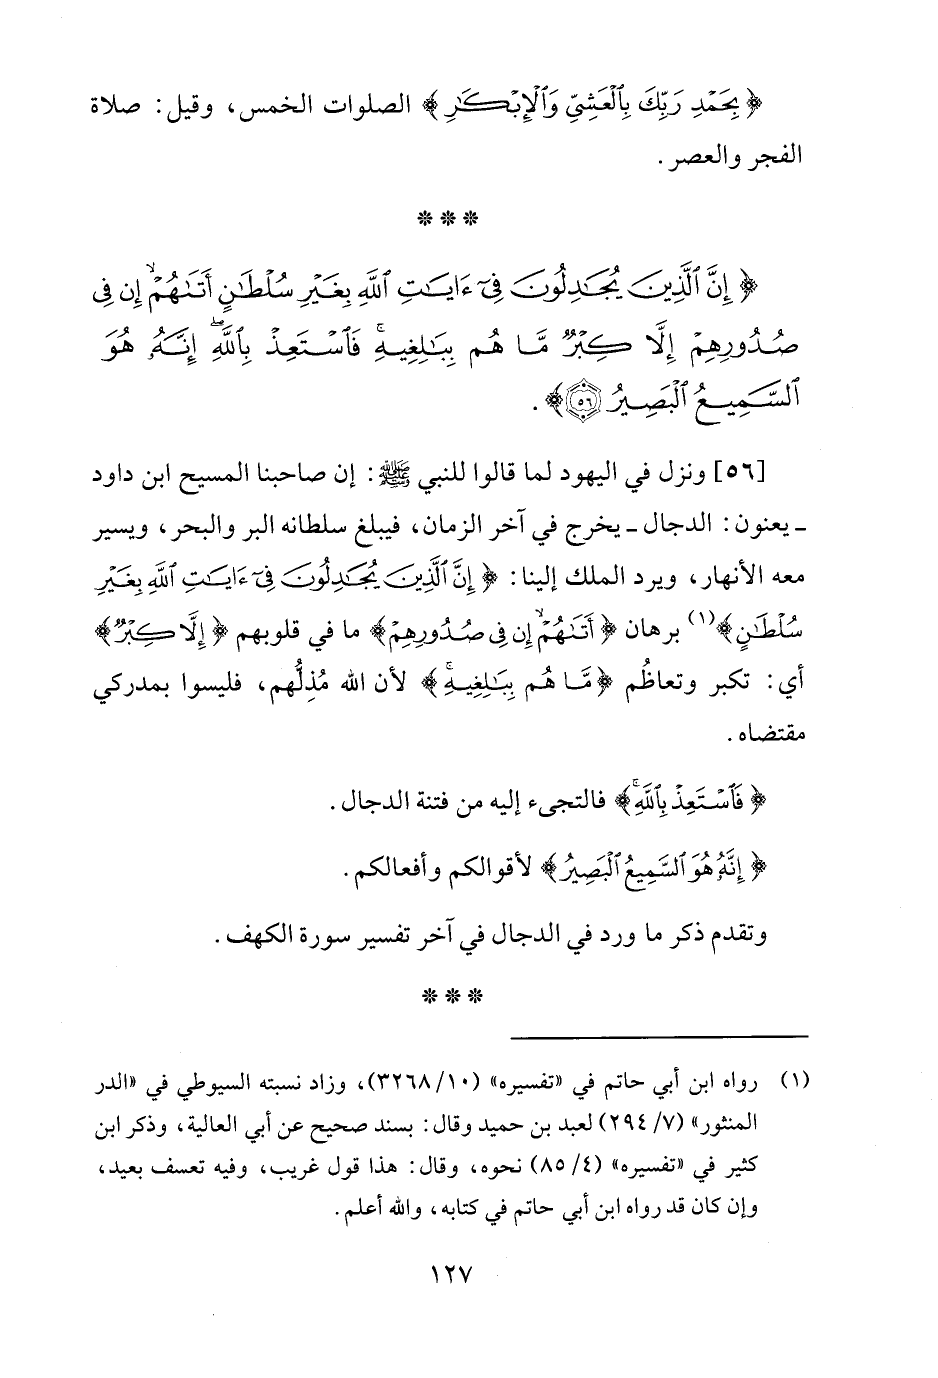 ﴿بِحَمْدِ رَبِّكَ بِالْعَشِيِّ وَالْإِبْكَارِ﴾ الصلوات الخمس، وقيل: صلاة
الفجر والعصر.
* * *
﴿إِنَّ ٱلَّذِينَ يُجَٰدِلُونَ فِيٓ ءَايَٰتِ ٱللَّهِ بِغَيْرِ سُلْطَٰنٍ أَتَىٰهُمْ ۙ إِن فِي
صُدُورِهِمْ إِلَّا كِبْرٌ مَّا هُم بِبَٰلِغِيهِ ۚ فَٱسْتَعِذْ بِٱللَّهِ ۖ إِنَّهُۥ هُوَ
ٱلسَّمِيعُ ٱلْبَصِيرُ ٥٦﴾.
[٥٦] ونزل في اليهود لما قالوا للنبي ﷺ: إن صاحبنا المسيح ابن داود
ـ يعنون: الدجال ـ يخرج في آخر الزمان، فيبلغ سلطانه البر والبحر، ويسير
معه الأنهار، ويرد الملك إلينا: ﴿إِنَّ ٱلَّذِينَ يُجَٰدِلُونَ فِيٓ ءَايَٰتِ ٱللَّهِ بِغَيْرِ
سُلْطَٰنٍ﴾(١) برهان ﴿أَتَىٰهُمْ ۙ إِن فِي صُدُورِهِمْ﴾ ما في قلوبهم ﴿إِلَّا كِبْرٌ﴾
أي: تكبر وتعاظُم ﴿مَّا هُم بِبَٰلِغِيهِ ۚ﴾ لأن الله مُذِلُّهم، فليسوا بمدركي
مقتضاه.
﴿فَٱسْتَعِذْ بِٱللَّهِ ۚ﴾ فالتجىء إليه من فتنة الدجال.
﴿إِنَّهُۥ هُوَ ٱلسَّمِيعُ ٱلْبَصِيرُ﴾ لأقوالكم وأفعالكم.
وتقدم ذكر ما ورد في الدجال في آخر تفسير سورة الكهف.
* * *
(١) رواه ابن أبي حاتم في «تفسيره» (١٠/ ٣٢٦٨)، وزاد نسبته السيوطي في «الدر
المنثور» (٧/ ٢٩٤) لعبد بن حميد وقال: بسند صحيح عن أبي العالية، وذكر ابن
كثير في «تفسيره» (٤/ ٨٥) نحوه، وقال: هذا قول غريب، وفيه تعسف بعيد،
وإن كان قد رواه ابن أبي حاتم في كتابه، والله أعلم.
١٢٧